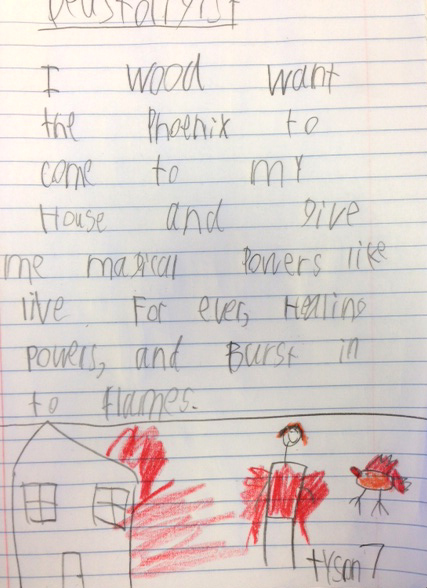 I wood want
the Phoenix to
come to my
House and give
me magical Powers like
live For ever, Healing
powers, and Burst in
to flames.
tyson 7